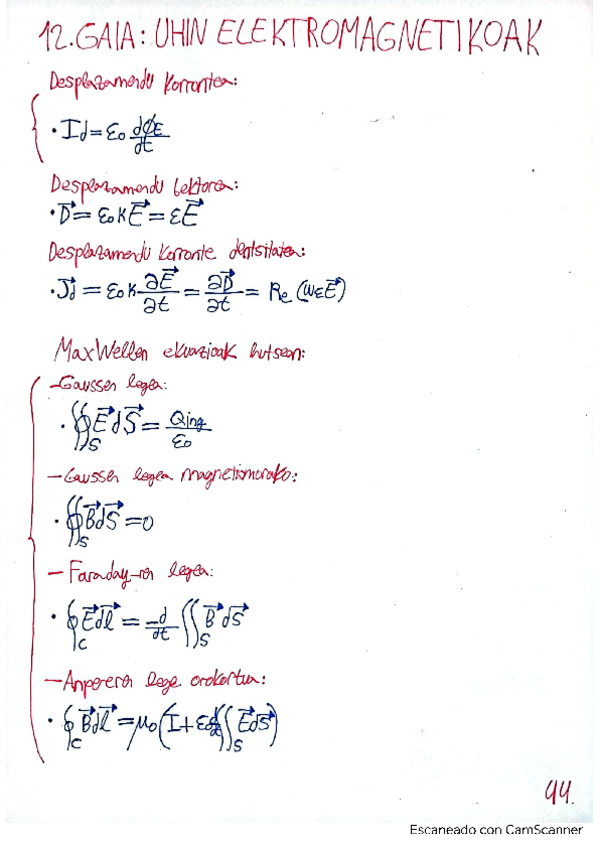 12. GAIA: UHIN ELEKTROMAGNETIKOAK
Desplazamendu korrontea:
· Id = ε0 dφE/dt
Desplazamendu bektorea:
· D⃗ = ε0 K E⃗ = ε E⃗
Desplazamendu korronte dentsitatea:
· J⃗d = ε0 K ∂E⃗/∂t = ∂D⃗/∂t = Re (ωεE⃗)
Maxwellen ekuazioak hutsean:
- Gaussen legea:
· ∯S E⃗ dS⃗ = Qing/ε0
- Gaussen legea magnetismorako:
· ∯S B⃗ dS⃗ = 0
- Faraday-ren legea:
· ∮C E⃗ dl⃗ = -d/dt ∬S B⃗ dS⃗
- Anpereren lege orokortua:
· ∮C B⃗ dl⃗ = μ0 (I + ε0 d/dt ∬S E⃗ dS⃗)
44.
Escaneado con CamScanner